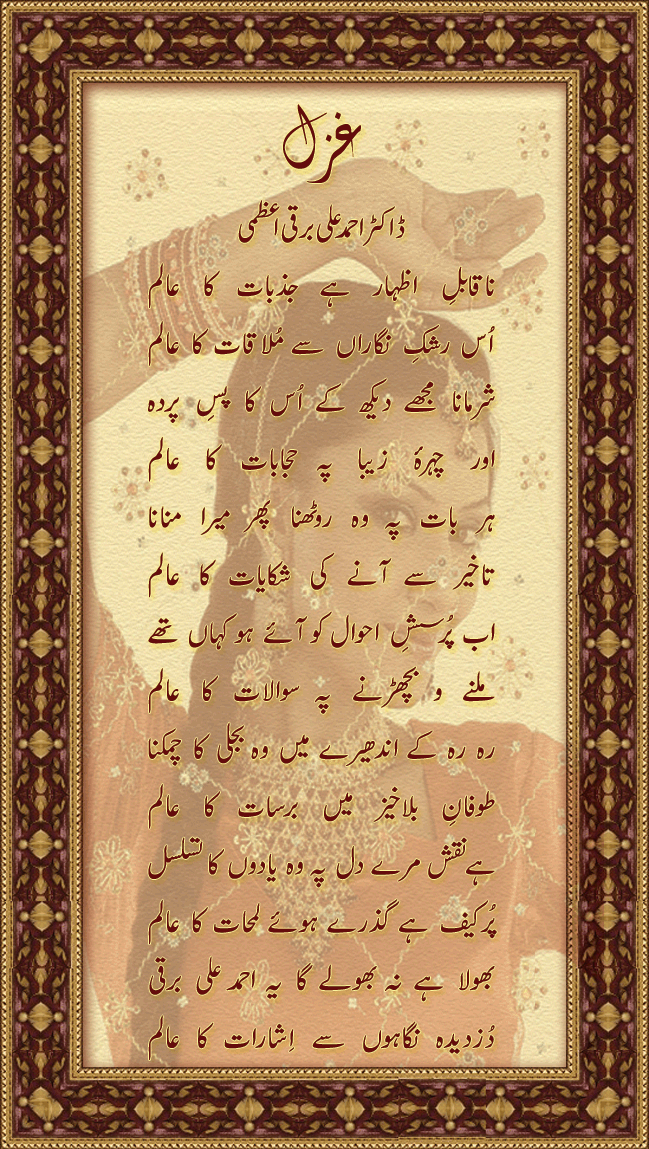 غزل
ڈاکٹر احمد علی برقی اعظمی
ناقابلِ اظہار ہے جذبات کا عالم
اُس رشکِ نگاراں سے مُلاقات کا عالم
شرمانا مجھے دیکھ کے اُس کا پسِ پردہ
اور چہرۂ زیبا پہ حجابات کا عالم
ہر بات پہ وہ روٹھنا پھر میرا منانا
تاخیر سے آنے کی شکایات کا عالم
اب پُرسشِ احوال کو آئے ہو کہاں تھے
ملنے و بچھڑنے پہ سوالات کا عالم
رہ رہ کے اندھیرے میں وہ بجلی کا چمکنا
طوفانِ بلاخیز میں برسات کا عالم
ہے نقش مرے دل پہ وہ یادوں کا تسلسل
پُرکیف ہے گذرے ہوئے لمحات کا عالم
بھولا ہے نہ بھولے گا یہ احمد علی برقی
دُزدیدہ نگاہوں سے اِشارات کا عالم